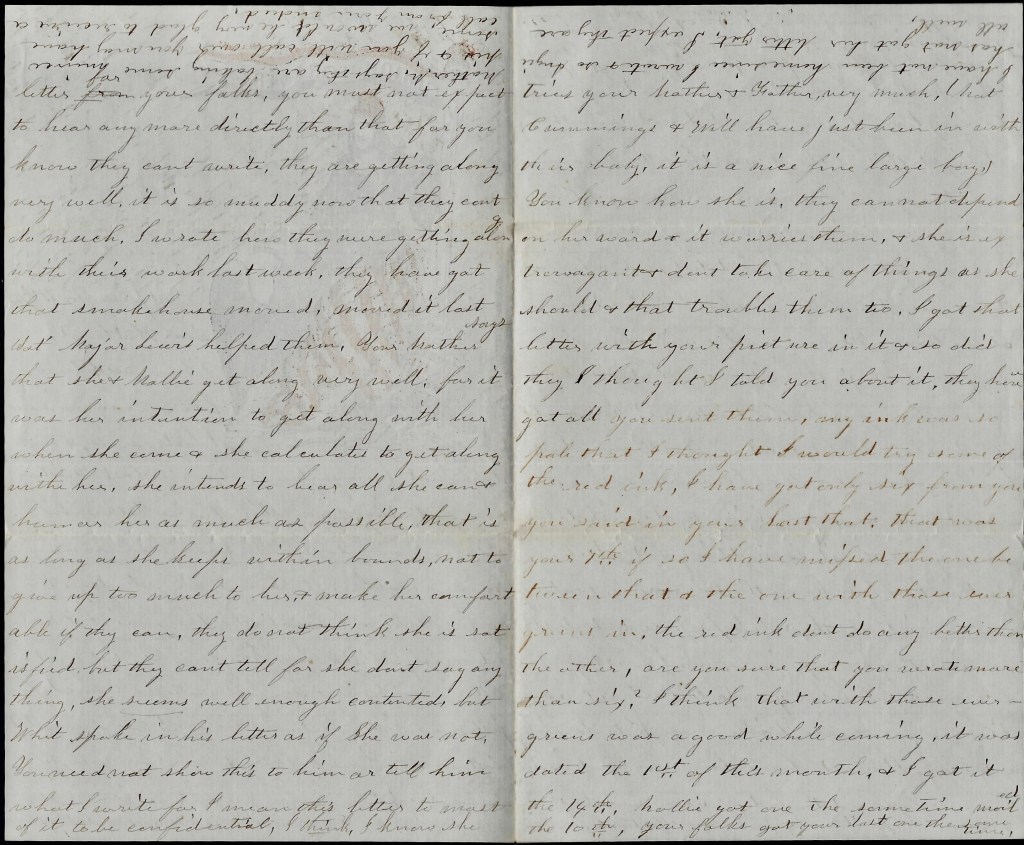 letter for your folks, you must not expect
to hear any more directly than that for you
know they cant write, they are getting along
very well, it is so muddy now that they cant
do much. I wrote how they were getting along
with their work last week, they have got
that smokehouse moved, moved it last
Sat Major Lewis helped them, Your Mother says
that she & Hallie get along very well, for it
was her intention to get along with her
when she come & she calculates to get along
withe her, she intends to bear all she can &
humor her as much as possible, that is
as long as she keeps within bounds, not to
give up too much to her, & make her comfort
able if thy can, they do not think she is sat
isfied but they cant tell for she dont say any
thing, she seems well enough contented, but
Whit spoke in his letter as if she was not.
You need not show this to him or tell him
what I write for I mean this letter to most
of it to be confidential, I think, I know she
tries your Mother & Father, very much, (that
Cummings & Will have just been in with
their baby, it is a nice fine large boy,)
You know how she is, they can not depend
on her word & it worries them, & she is ex
travagant & dont take care of things as she
should & that troubles them too. I got that
letter with your picture in it & so did
they I thought I told you about it, they have
got all you sent them, my ink was so
pale that I thought I would try some of
the red ink, I have got only six from you
you said in your last that, that was
your 7th if so I have missed the one be
tween that & the one with those ever
greens in. the red ink dont do any better than
the other, are you sure that you wrote more
than six? I think that with those ever-
greens was a good while coming, it was
dated the 1st of this month, & I got it
the 14th, Hallie got one the same time mailed
the 10th, your folks got your last one the same
time,
I have not been home since I wrote & so Angie
has not got her letter yet, I expect they are
all well,
Mother, she says they are taking some
& if you will call and you may have
some, we would be very glad to receive a
call from you indeed,